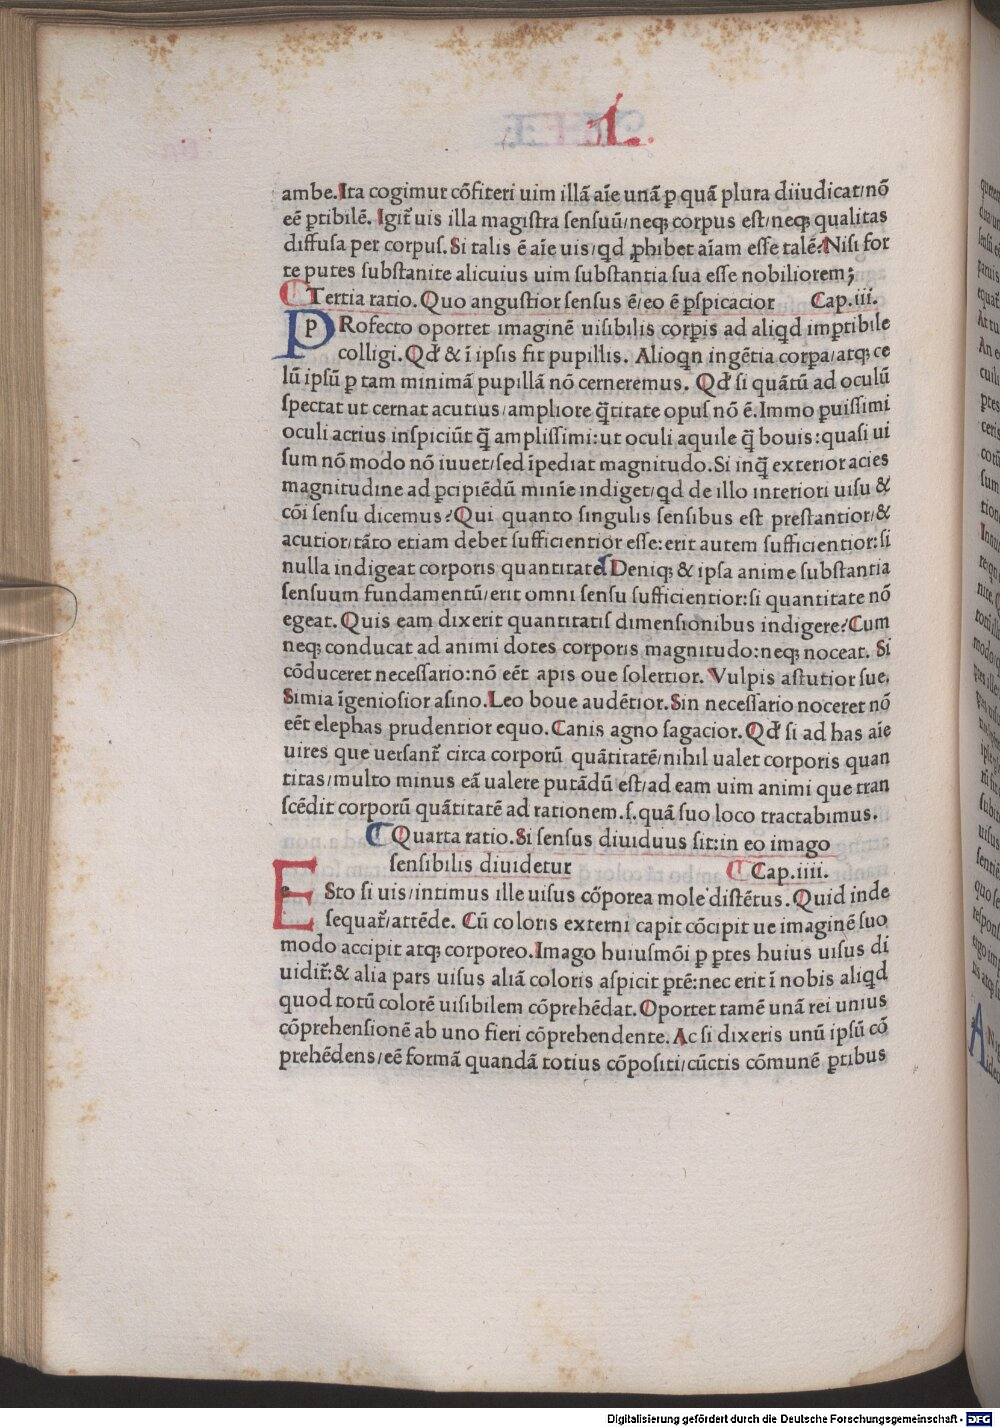 L.
ambe. Ita cogimur cõfiteri uim illã aĩe unã ꝑ quã plura diiudicat/nõ
eẽ ꝑtibilẽ. Igit᷑ uis illa magiſtra ſenſuũ/neqꝫ corpus eſt/neqꝫ qualitas
diffuſa per corpuſ. Si talis ẽ aĩe uis/qd ꝓhibet aĩam eſſe talẽ? Niſi for
te putes ſubſtantie alicuius uim ſubſtantia ſua eſſe nobiliorem;
Tertia ratio. Quo anguſtior ſenſus ẽ/eo ẽ ꝑſpicacior Cap. iii.
PRofecto oportet imaginẽ uiſibilis corꝑis ad aliqd imꝑtibile
colligi. Qd' & ĩ ipſis fit pupillis. Alioqn ingẽtia corꝑa/atqꝫ ce
lũ ipſũ ꝑ tam minimã pupillã nõ cerneremus. Qd' ſi quãtũ ad oculũ
ſpectat ut cernat acutius/ampliore q̃titate opuſ nõ ẽ. Immo ꝑuiſſimi
oculi acrius inſpiciũt q̃ ampliſſimi: ut oculi aquile q̃ bouis: quaſi ui
ſum nõ modo nõ iuuet/ſed ĩpediat magnitudo. Si inq̃ exterior acies
magnitudine ad ꝑcipiẽdũ minĩe indiget/qd de illo interiori uiſu &
cõi ſenſu dicemus? Qui quanto ſingulis ſenſibus eſt preſtantior/&
acutior/tãto etiam debet ſufficientior eſſe: erit autem ſufficientior: ſi
nulla indigeat corporis quantitate. Deniqꝫ & ipſa anime ſubſtantia
ſenſuum fundamentũ/erit omni ſenſu ſufficientior: ſi quantitate nõ
egeat. Quis eam dixerit quantitatiſ dimenſionibus indigere? Cum
neqꝫ conducat ad animi dotes corporis magnitudo: neqꝫ noceat. Si
cõduceret neceſſario: nõ eẽt apis oue ſolertior. Vulpis aſtutior ſue.
Simia ĩgenioſior aſino. Leo boue audẽtior. Sin neceſſario noceret nõ
eẽt elephas prudentior equo. Canis agno ſagacior. Qd' ſi ad has aĩe
uires que uerſant᷑ circa corporũ quãtitatẽ/nihil ualet corporis quan
titas/multo minus eã ualere putãdũ eſt/ad eam uim animi que tran
ſcẽdit corporũ quãtitatẽ ad rationem. ſ. quã ſuo loco tractabimus.
Quarta ratio. Si ſenſus diuiduus ſit: in eo imago
ſenſibilis diuidetur Cap. iiii.
ESto ſi uis/intimus ille uiſus cõporea mole diſtẽtus. Quid inde
ſequat᷑/attẽde. Cũ coloris externi capit cõcipit ue imaginẽ ſuo
modo accipit atqꝫ corporeo. Imago huiuſmõi ꝑ ꝑtes huius uiſus di
uidit᷑: & alia pars uiſus aliã coloris aſpicit ꝑtẽ: nec erit ĩ nobis aliqd
quod totũ colorẽ uiſibilem cõprehẽdat. Oportet tamẽ unã rei unius
cõprehenſionẽ ab uno fieri cõprehendente. Ac ſi dixeris unũ ipſũ cõ
prehẽdens/eẽ formã quandã totius cõpoſiti/cũctis cõmunẽ ꝑtibus
Digitalisierung gefördert durch die Deutsche Forschungsgemeinschaft - DFG